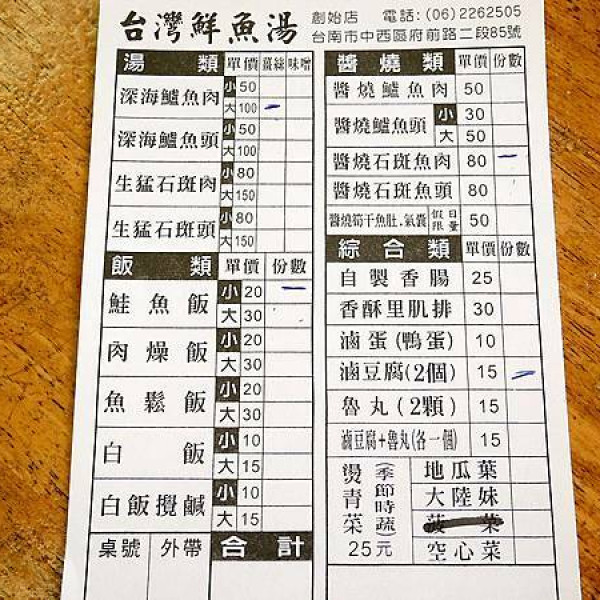 台灣鮮魚湯 創始店 電話:(06)2262505
台南市中西區府前路二段85號
湯類 單價 薑絲 味噌
深海鱸魚肉 小 50
大 100
深海鱸魚頭 小 50
大 100
生猛石斑肉 小 80
大 150
生猛石斑頭 小 80
大 150
飯類 單價 份數
鮭魚飯 小 20
大 30
肉燥飯 小 20
大 30
魚鬆飯 小 20
大 30
白飯 小 10
大 15
白飯攪鹹 小 10
大 15
桌號 外帶 合計
醬燒類 單價 份數
醬燒鱸魚肉 50
醬燒鱸魚頭 小 30
大 50
醬燒石斑魚肉 80
醬燒石斑魚頭 80
醬燒筍干魚肚.氣囊 假日限量 50
綜合類 單價 份數
自製香腸 25
香酥里肌排 30
滷蛋(鴨蛋) 10
滷豆腐(2個) 15
魯丸(2顆) 15
滷豆腐+魯丸(各一個) 15
燙青菜 (季節時蔬) 25元
地瓜葉
大陸妹
菠菜
空心菜